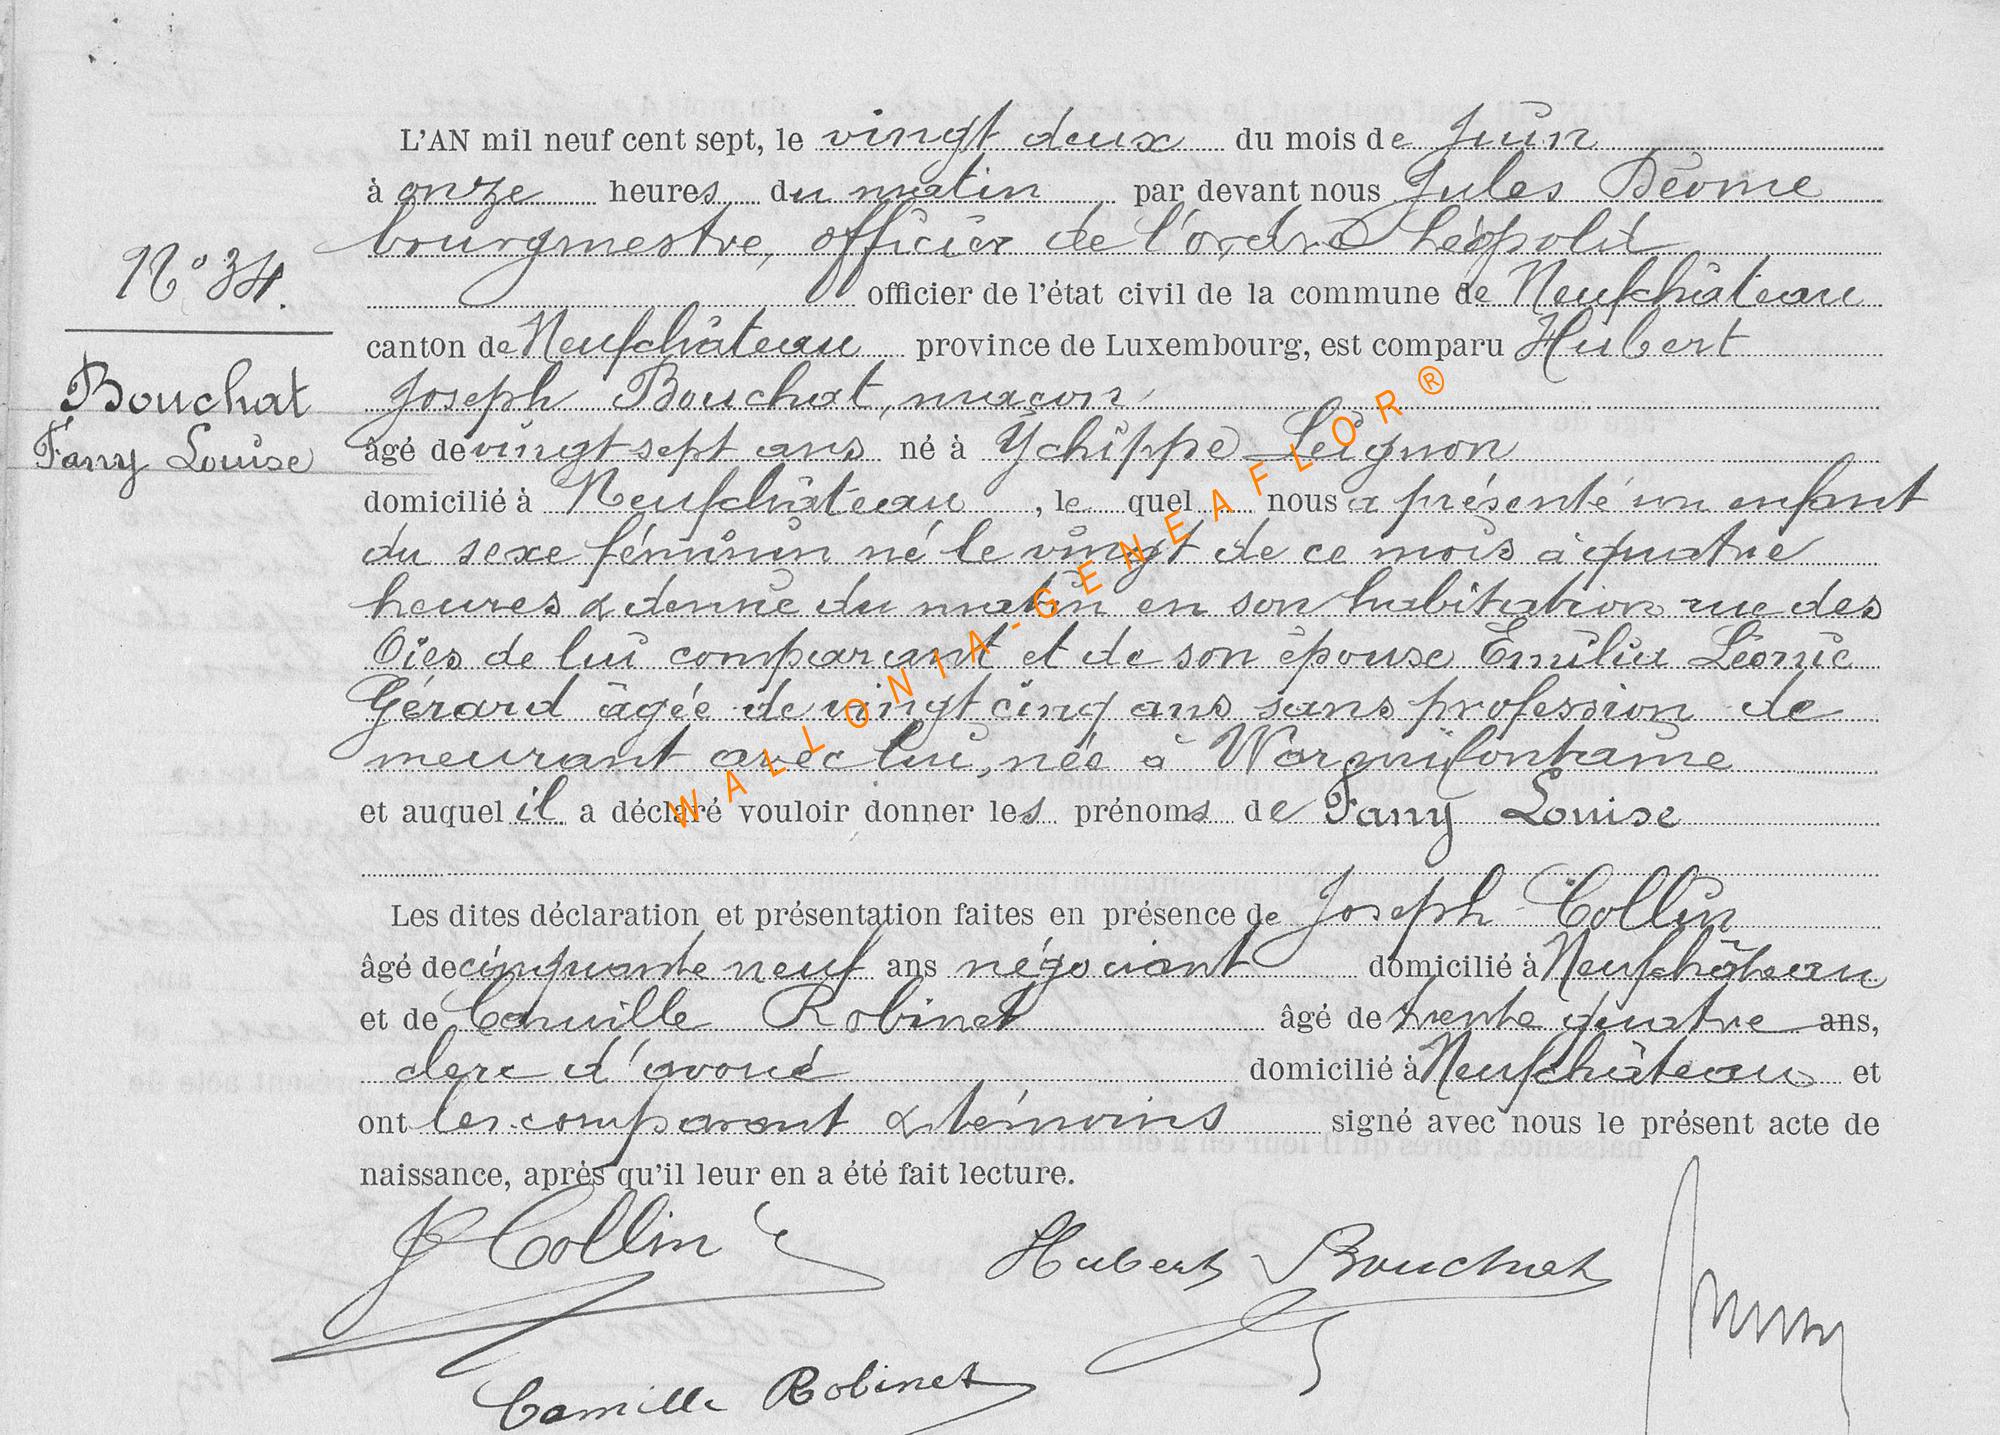 L'AN mil neuf cent sept, le vingt deux du mois de Juin
à onze heures du matin par devant nous Jules Déome
bourgmestre, officier de l'ordre Léopold
officier de l'état civil de la commune de Neufchâteau
canton de Neufchâteau province de Luxembourg, est comparu Hubert
Joseph Bouchat, maçon
âgé de vingt sept ans né à Ychippe Leignon
domicilié à Neufchâteau, le quel nous a présenté un enfant
du sexe féminin né le vingt de ce mois à quatre
heures & demie du matin en son habitation rue des
Oies de lui comparant et de son épouse Emilia Léonie
Gérard âgée de vingt cinq ans sans profession de
meurant avec lui, née à Warmifontaine
et auquel il a déclaré vouloir donner les prénoms de Fany Louise
Les dites déclaration et présentation faites en présence de Joseph Collin
âgé de cinquante neuf ans négociant domicilié à Neufchâteau
et de Camille Robinet âgé de trente quatre ans,
clerc d'avoué domicilié à Neufchâteau et
ont les comparant & témoins signé avec nous le présent acte de
naissance, après qu'il leur en a été fait lecture.
N° 34.
Bouchat
Fany Louise
J Collin
Hubert Bouchat
Camille Robinet
WALLONIA-GENEAFLOR®